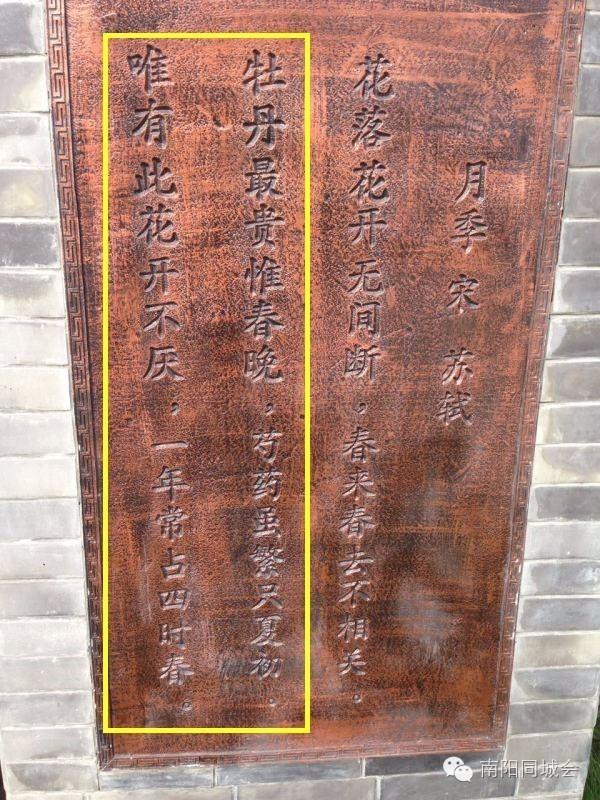 月季 宋 苏轼
花落花开无间断，春来春去不相关。
牡丹最贵惟春晚，芍药虽繁只夏初。
唯有此花开不厌，一年常占四时春。
南阳同城会